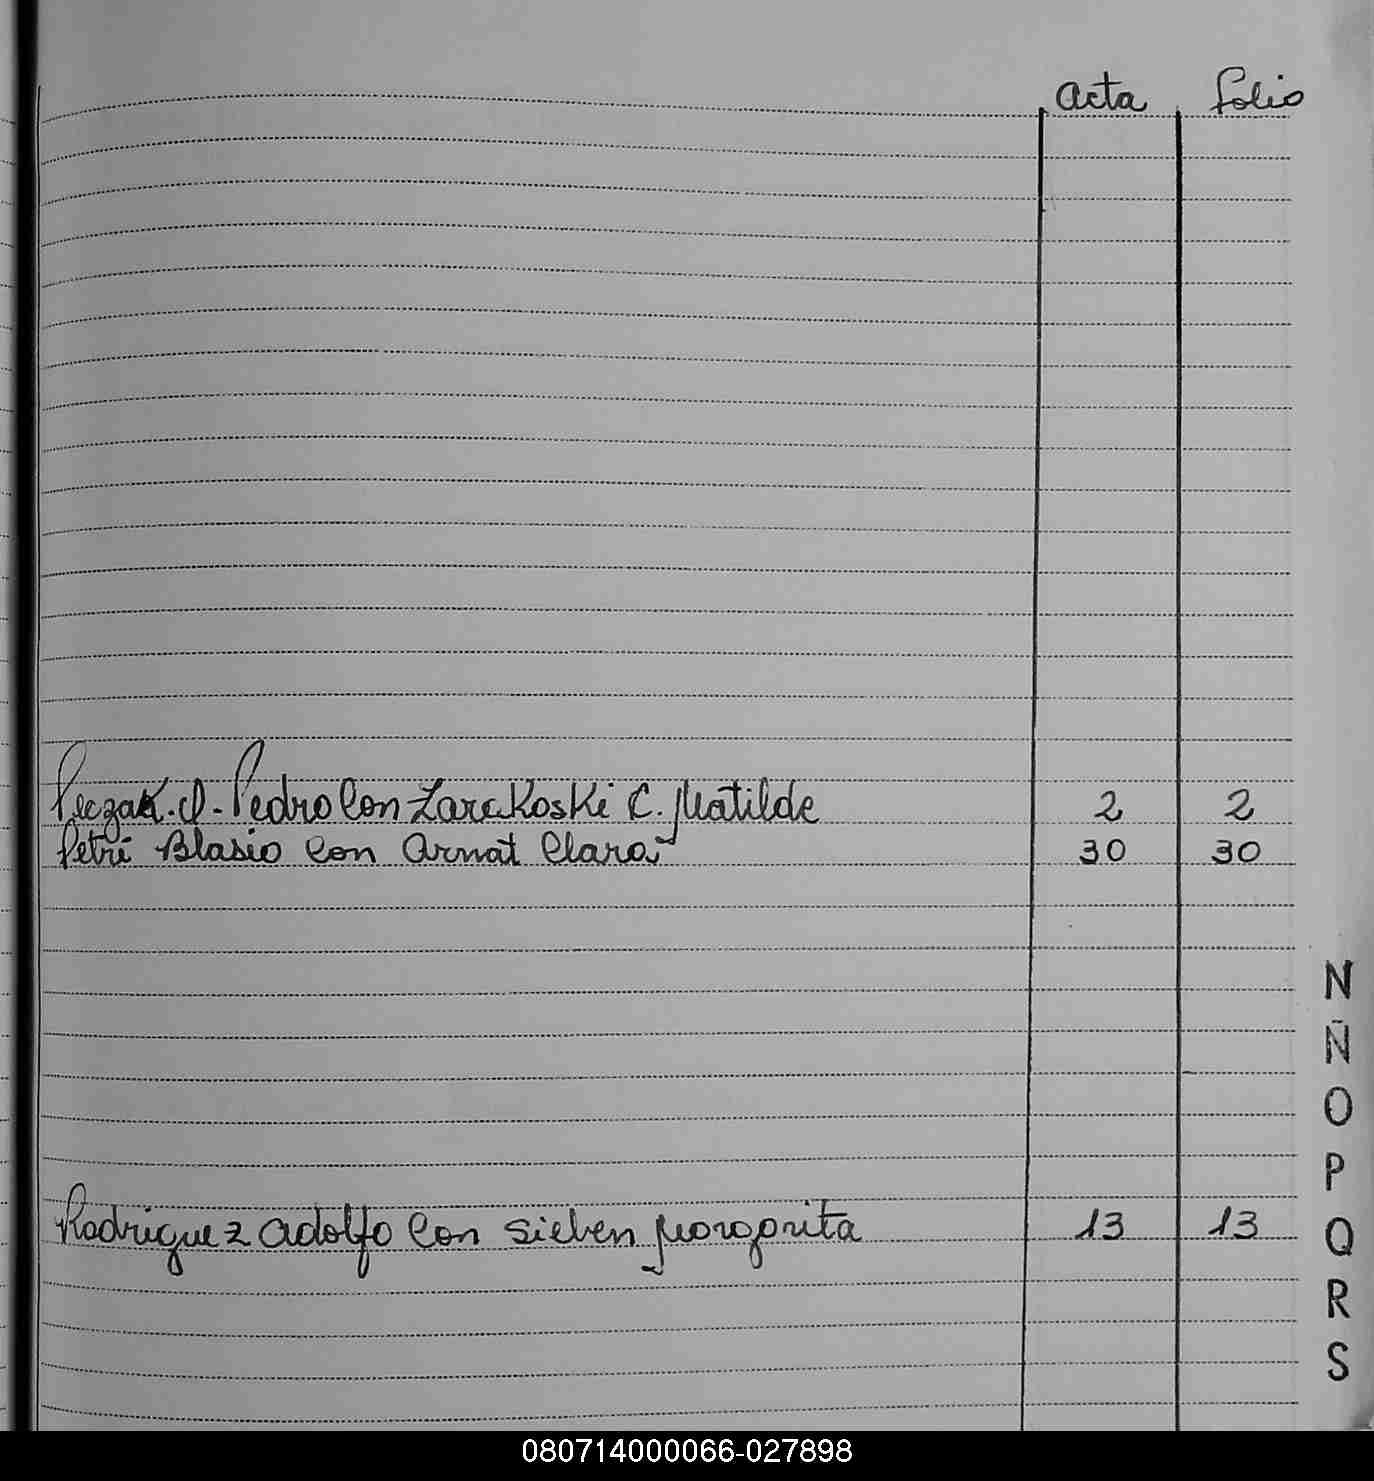 acta folio
Peczak. D. Pedro Con Zarekoski C. Matilde 2 2
Petri Blasio Con Arnat Clara 30 30
N
Ñ
O
P
Rodriguez Adolfo Con Sieben Margarita 13 13
Q
R
S
080714000066-027898